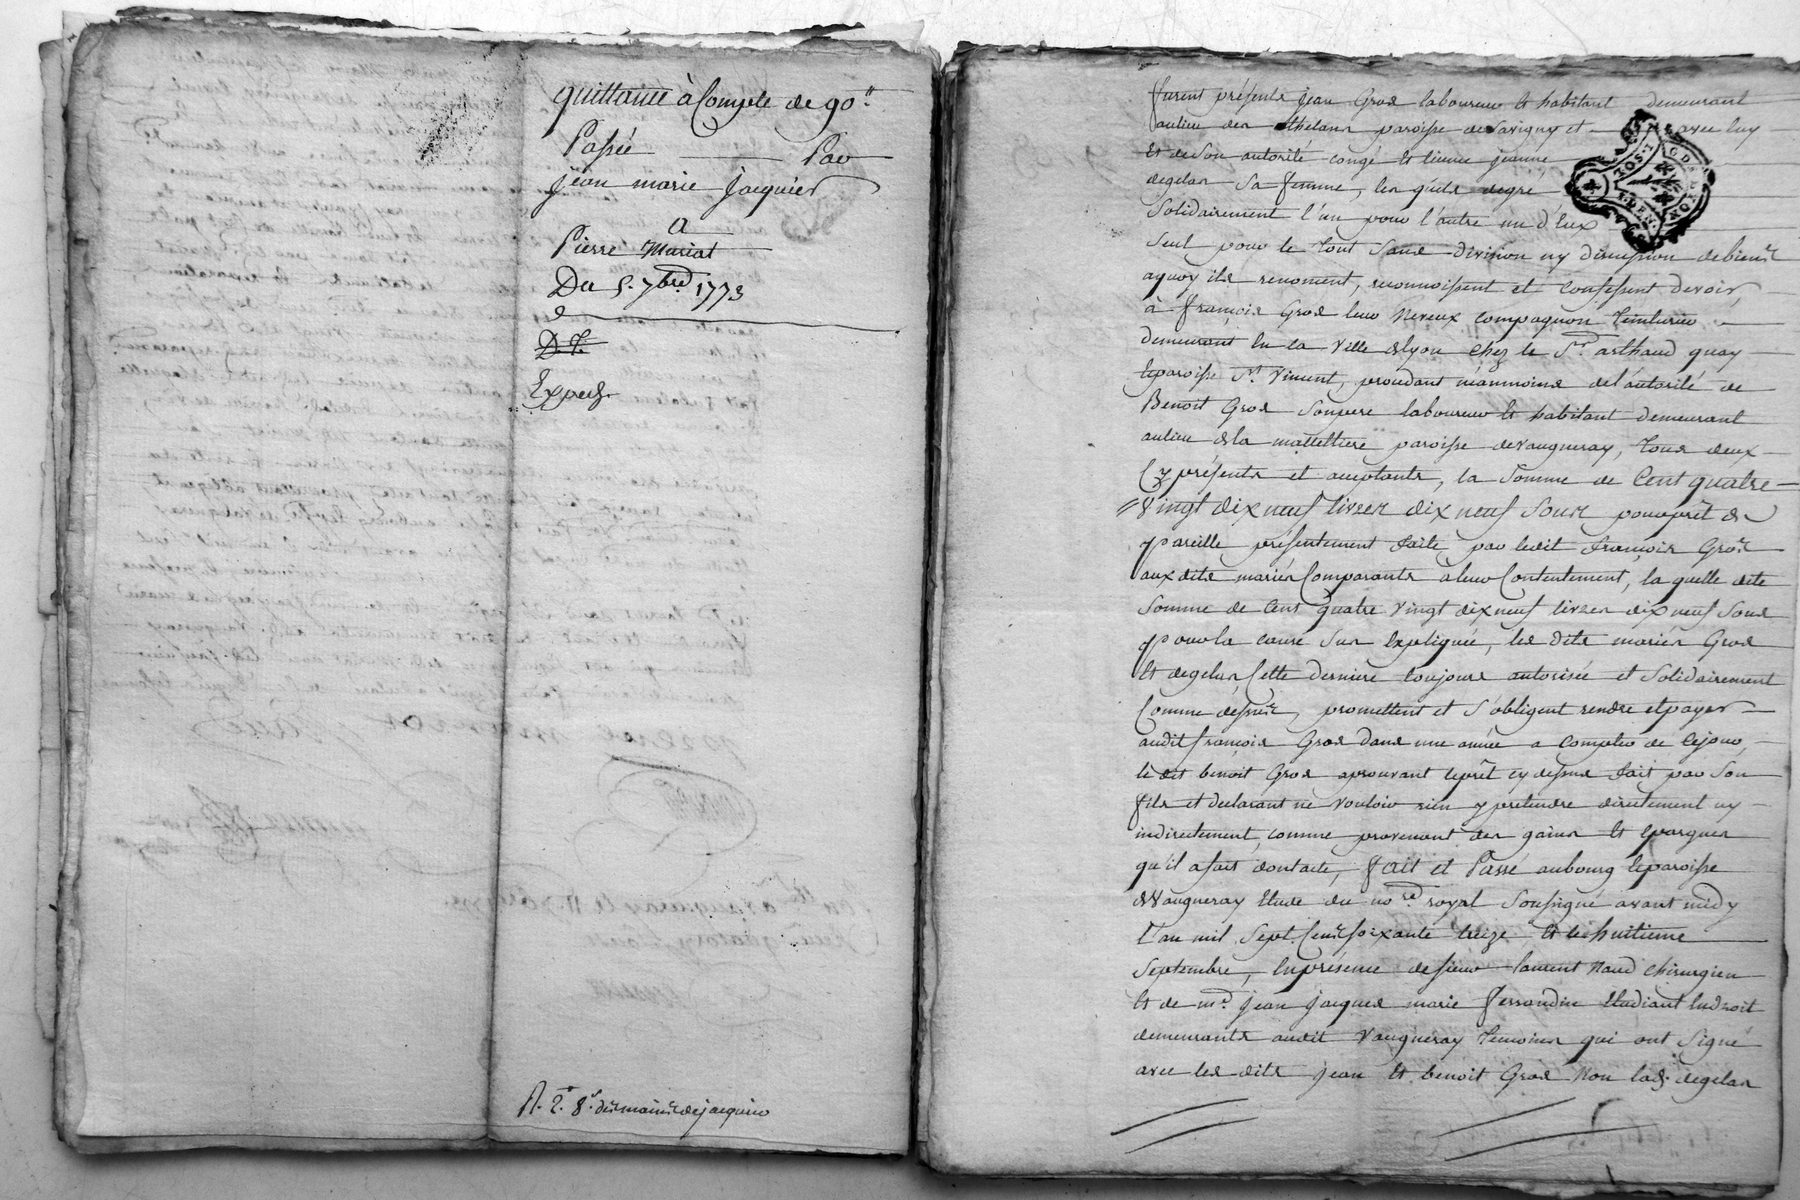 quittance à Compte de 90.tt
Passée Par
jean marie jacquier
A
Pierre Muriat
Du 5. 7bre 1773
D.T.
Exped.
R. 2. 8s des mains de jacquier
furent présents jean Gros laboureur et habitant demeurant
aulieu des paroisse de Savigny et avec luy
et de Son autorité congé et licence jeanne
degelas Sa femme, lesquels de gré
Solidairement l'un pour l'autre un d'Eux
Seul pour le tout Sans division ny discussion de biens
aquoy ils renoncent, reconnoissent et confessent devoir
à françois Gros leur Neveux compagnon teinturier
demeurant en la Ville de lyon chez le Sr. arthaud quay
et paroisse St. Vincent, procedant néanmoins de l'autorité de
Benoit Gros Son pere laboureur et habitant demeurant
aulieu de la paroisse de vaugneray, tous deux
Cy présents et acceptants, la Somme de Cent quatre
Vingt dix neuf livres dix neuf Sous pour prêt de
pareille présentement faite par ledit françois Gros
aux dits mariés Comparants a leur Contentement, la quelle dite
Somme de Cent quatre vingt dix neuf livres dix neuf Sous
pour la cause Sus Expliquée, les dits mariés Gros
et degelas Cette derniere toujours autorisée et Solidairement
Comme dessus, promettent et S'obligent rendre et payer
audit françois Gros dans une année a compter de Cejour,
le dit benoit Gros aprouvant leprêt cy dessus fait par Son
fils et declarant ne vouloir rien y pretendre directement ny
indirectement, comme provenant des gains et epargnes
qu'il a fait dont acte, fait et Passé aubourg et paroisse
de Vaugneray Etude du nore. royal Soussigné avant midy
L'an mil Sept Cent soixante treize et le huitieme
Septembre, En présence de sieur laurent Naud chirurgien
et de mr. jean jacques marie ferrandin Etudiant En droit
demeurants audit Vaugneray temoins qui ont Signé
avec les dits jean et benoit Gros Non lad. degelas